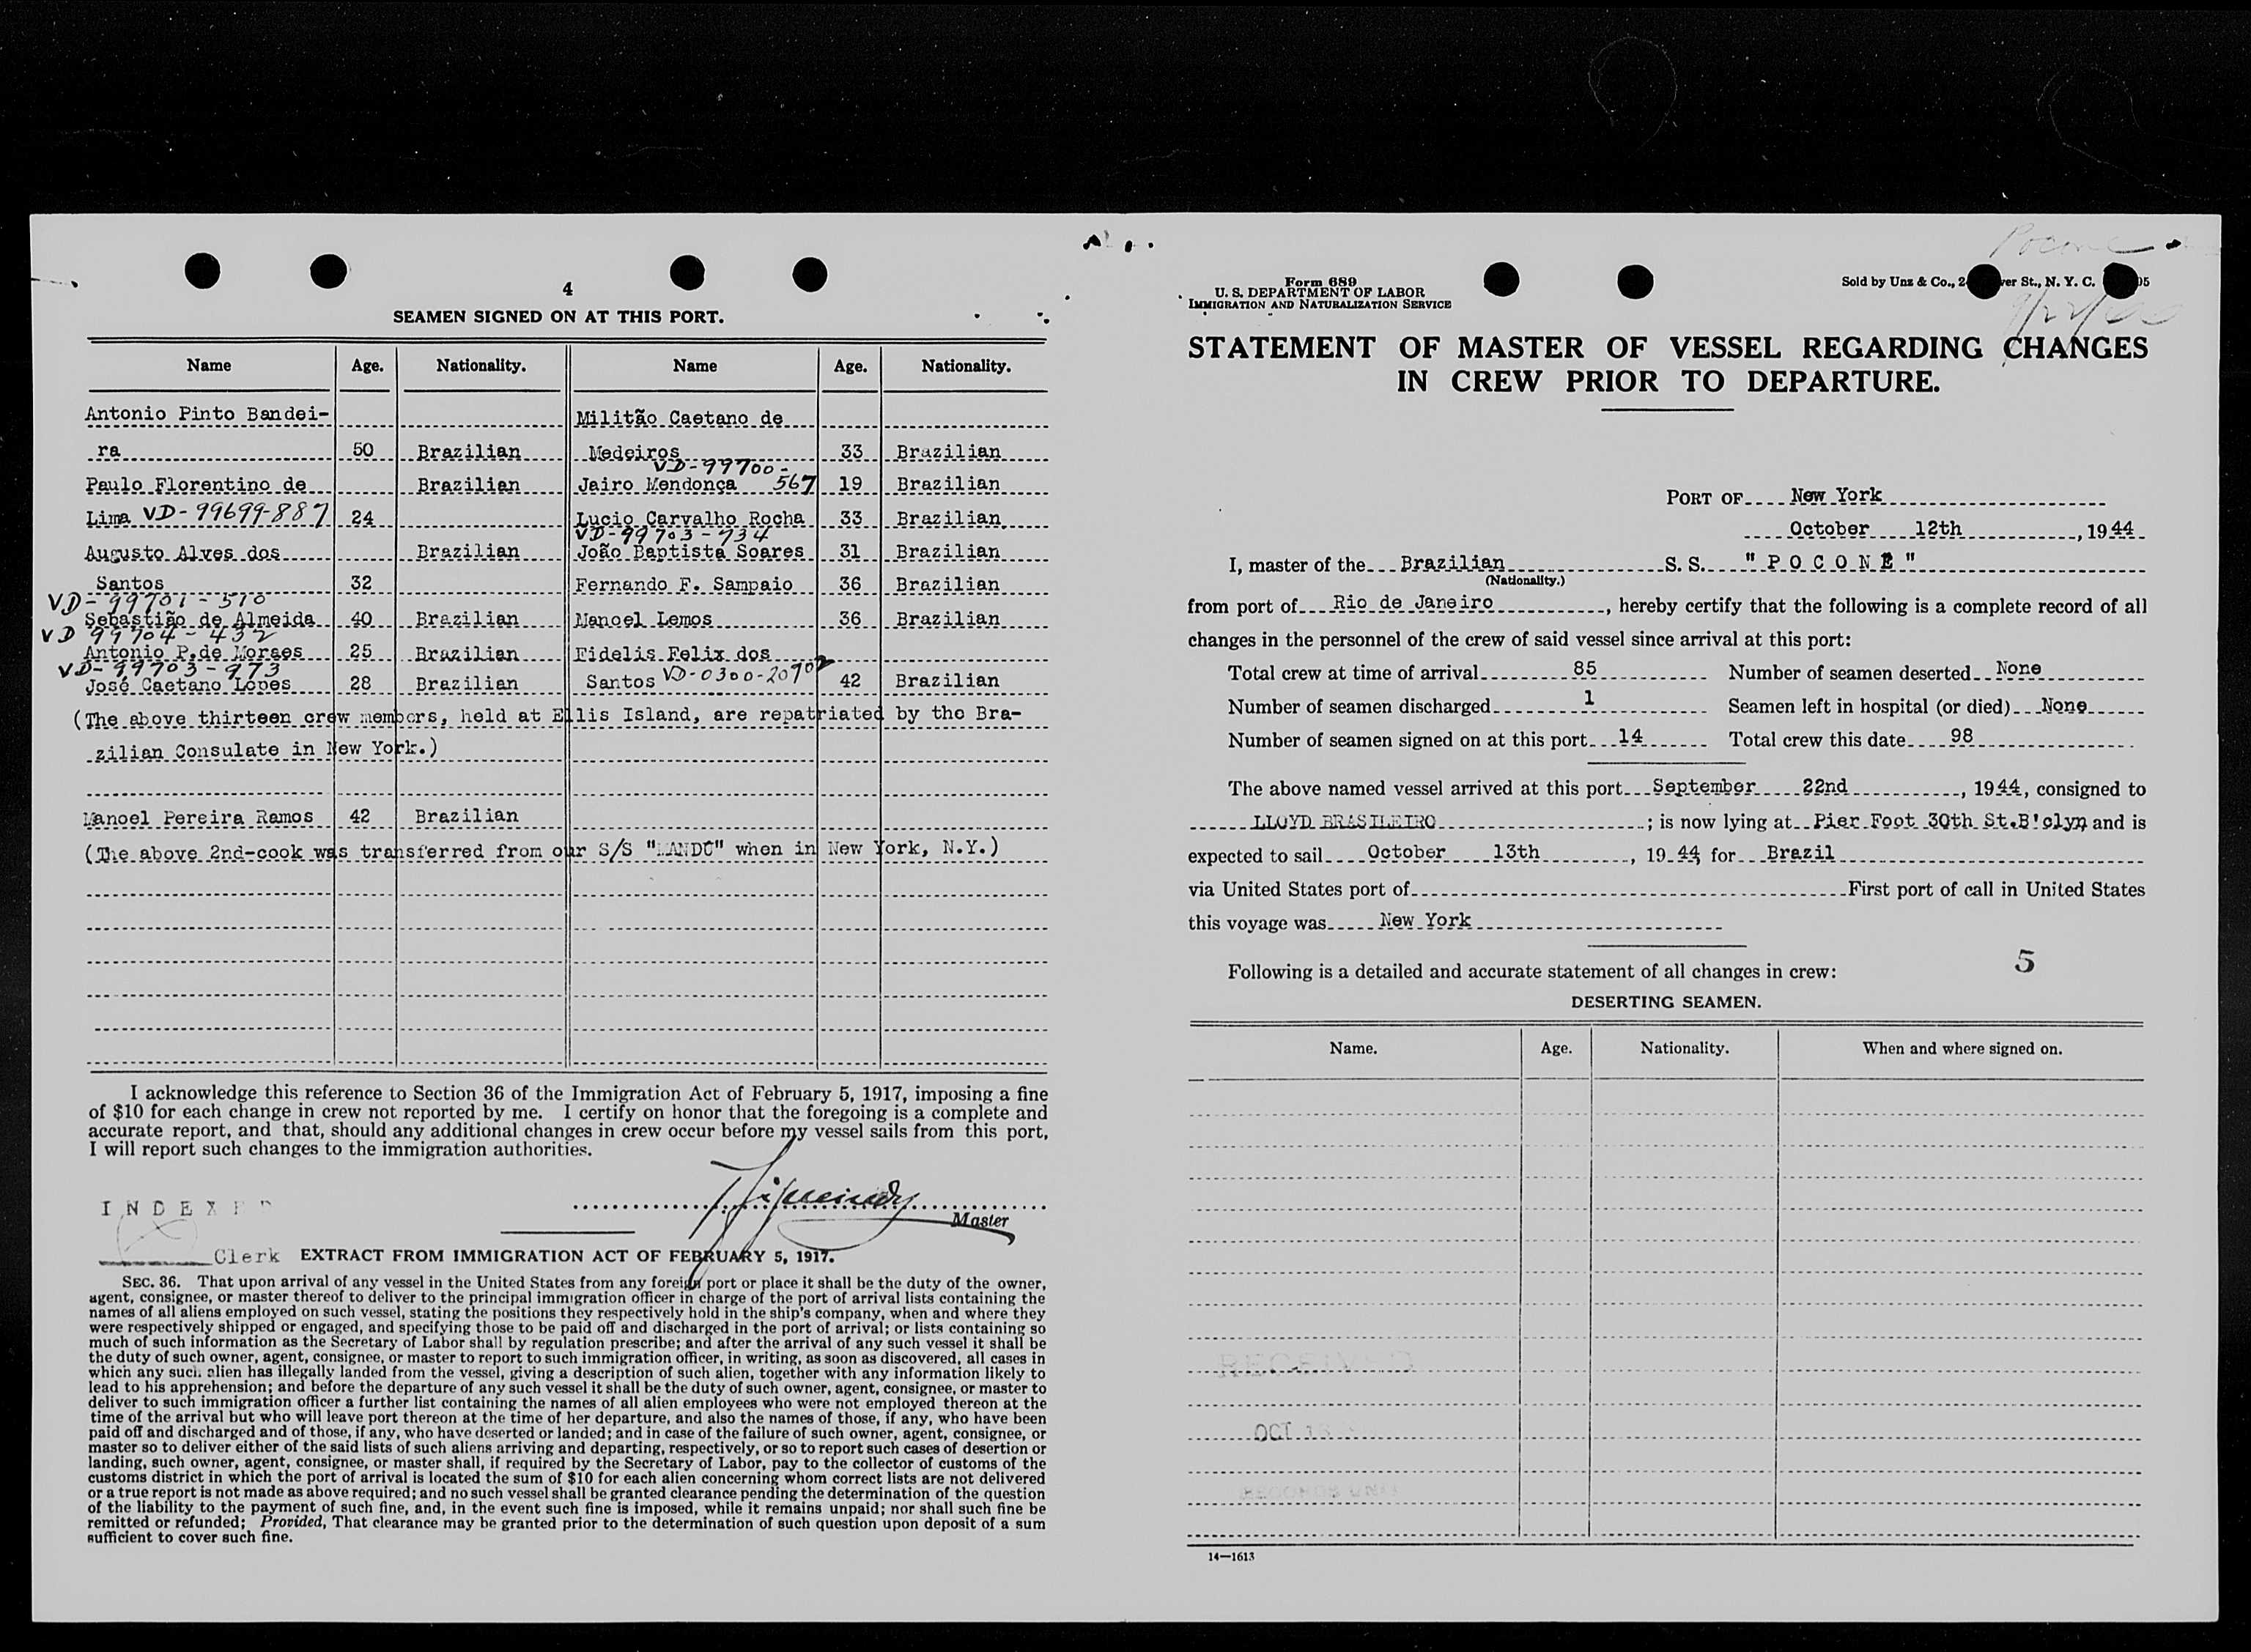 4
SEAMEN SIGNED ON AT THIS PORT.
Name Age. Nationality. Name Age. Nationality.
Antonio Pinto Bandei- Militão Caetano de
ra 50 Brazilian Medeiros 33 Brazilian
VD-99700-
Paulo Florentino de Brazilian Jairo Mendonça 567 19 Brazilian
Lima VD-99699-887 24 Lucio Carvalho Rocha 33 Brazilian
VD-99703-934
Augusto Alves dos Brazilian João Baptista Soares 31 Brazilian
Santos 32 Fernando F. Sampaio 36 Brazilian
VD-99701-510
Sebastião de Almeida 40 Brazilian Manoel Lemos 36 Brazilian
VD 99704-432
Antonio P.de Moraes 25 Brazilian Fidelis Felix dos
VD-99703-973
José Caetano Lopes 28 Brazilian Santos VD-0300-20902 42 Brazilian
(The above thirteen crew members, held at Ellis Island, are repatriated by the Bra-
zilian Consulate in New York.)
Manoel Pereira Ramos 42 Brazilian
(The above 2nd-cook was transferred from our S/S "MANDU" when in New York, N.Y.)
I acknowledge this reference to Section 36 of the Immigration Act of February 5, 1917, imposing a fine
of $10 for each change in crew not reported by me. I certify on honor that the foregoing is a complete and
accurate report, and that, should any additional changes in crew occur before my vessel sails from this port,
I will report such changes to the immigration authorities.
INDEXED
Master
Clerk EXTRACT FROM IMMIGRATION ACT OF FEBRUARY 5, 1917.
SEC. 36. That upon arrival of any vessel in the United States from any foreign port or place it shall be the duty of the owner,
agent, consignee, or master thereof to deliver to the principal immigration officer in charge of the port of arrival lists containing the
names of all aliens employed on such vessel, stating the positions they respectively hold in the ship's company, when and where they
were respectively shipped or engaged, and specifying those to be paid off and discharged in the port of arrival; or lists containing so
much of such information as the Secretary of Labor shall by regulation prescribe; and after the arrival of any such vessel it shall be
the duty of such owner, agent, consignee, or master to report to such immigration officer, in writing, as soon as discovered, all cases in
which any such alien has illegally landed from the vessel, giving a description of such alien, together with any information likely to
lead to his apprehension; and before the departure of any such vessel it shall be the duty of such owner, agent, consignee, or master to
deliver to such immigration officer a further list containing the names of all alien employees who were not employed thereon at the
time of the arrival but who will leave port thereon at the time of her departure, and also the names of those, if any, who have been
paid off and discharged and of those, if any, who have deserted or landed; and in case of the failure of such owner, agent, consignee, or
master so to deliver either of the said lists of such aliens arriving and departing, respectively, or so to report such cases of desertion or
landing, such owner, agent, consignee, or master shall, if required by the Secretary of Labor, pay to the collector of customs of the
customs district in which the port of arrival is located the sum of $10 for each alien concerning whom correct lists are not delivered
or a true report is not made as above required; and no such vessel shall be granted clearance pending the determination of the question
of the liability to the payment of such fine, and, in the event such fine is imposed, while it remains unpaid; nor shall such fine be
remitted or refunded; Provided, That clearance may be granted prior to the determination of such question upon deposit of a sum
sufficient to cover such fine.
Pocone
Form 689
U. S. DEPARTMENT OF LABOR
IMMIGRATION AND NATURALIZATION SERVICE
Sold by Unz & Co., St., N. Y. C.
9/22/44
STATEMENT OF MASTER OF VESSEL REGARDING CHANGES
IN CREW PRIOR TO DEPARTURE.
PORT OF New York
October 12th, 1944
I, master of the Brazilian S. S. "POCONE"
(Nationality.)
from port of Rio de Janeiro, hereby certify that the following is a complete record of all
changes in the personnel of the crew of said vessel since arrival at this port:
Total crew at time of arrival 85 Number of seamen deserted None
Number of seamen discharged 1 Seamen left in hospital (or died) None
Number of seamen signed on at this port 14 Total crew this date 98
The above named vessel arrived at this port September 22nd, 1944, consigned to
LLOYD BRASILEIRO; is now lying at Pier Foot 30th St.B'clyn and is
expected to sail October 13th, 1944 for Brazil
via United States port of First port of call in United States
this voyage was New York
5
Following is a detailed and accurate statement of all changes in crew:
DESERTING SEAMEN.
Name. Age. Nationality. When and where signed on.
RECEIVED
OCT 16
RECORDS UNIT
14—1613